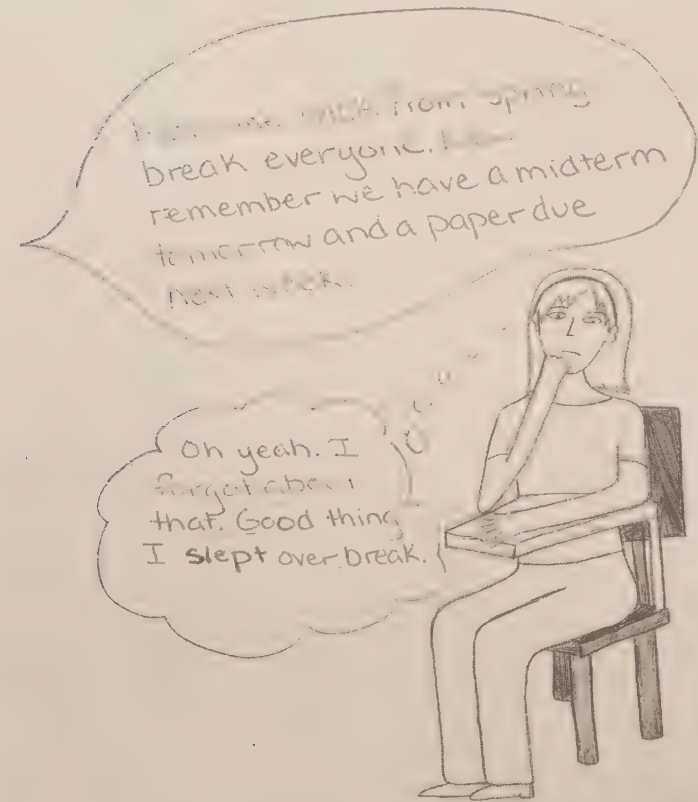 from spring
break everyone.
remember we have a midterm
tomorrow and a paper due
next week.
Oh yeah. I
forgot about
that. Good thing
I slept over break.